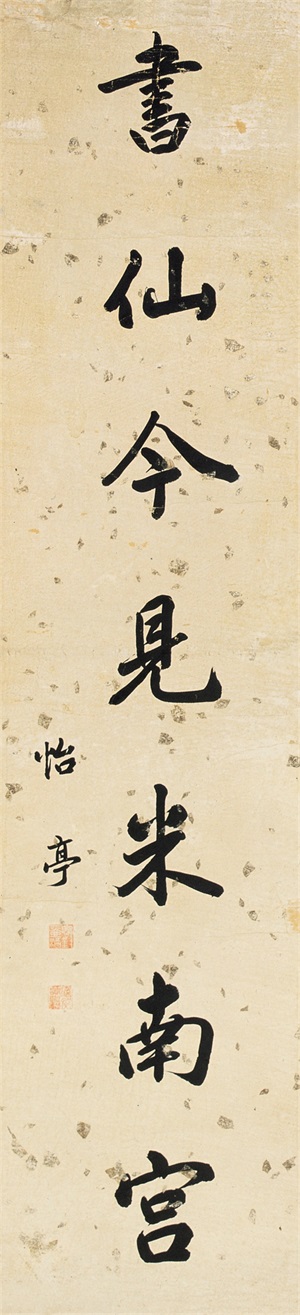 書仙今見米南宫
怡亭